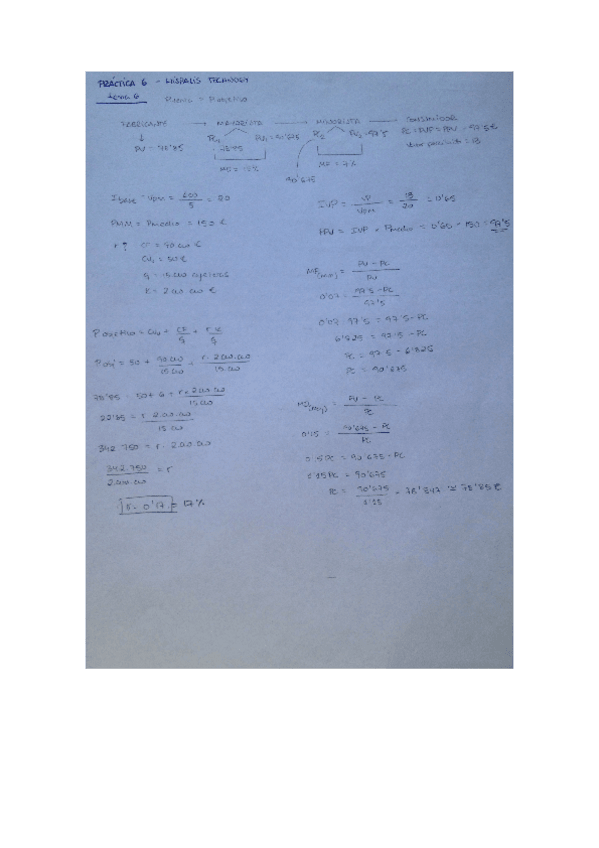 PRÁCTICA 6 - HISPALIS TECHNOLOGY
tema 6
FABRICANTE → MAYORISTA → MINORISTA → CONSUMIDOR
PV = 78'85
PC₁ = 78'85
PV₁ = 90'675
PC₂
PV₂ = 97'5
PC = PVP = PPV = 97'5 €
MB = 15%
MB = 7%
90'675
Ibase = Vpm = 600/5 =
PMM = Pmedio = 150 €
r ?
CF = 90.000 €
CVu = 50 €
q = 15.000
K = 2.000.000 €
P objetivo = CVu + CF/q + r·K/q
P obj = 50 + 90.000/15.000 + r·2.000.000/15.000
78'85 = 50 + 6 + r·2.000.000/15.000
22'85 = r·2.000.000/15.000
342.750 = r·2.000.000
342.750/2.000.000 = r
r = 0'17 = 17%
IVP = VP/Vpm = = 0'65
PPV = IVP · Pmedio = 0'65 · 150 = 97'5
MB(min) = PV - PC/PV
0'07 = 97'5 - PC/97'5
0'07 · 97'5 = 97'5 - PC
6'825 = 97'5 - PC
PC = 97'5 - 6'825
PC = 90'675
MB(may) = PV - PC/PC
0'15 = 90'675 - PC/PC
0'15 PC = 90'675 - PC
PC = 90'675
PC = 90'675/1'15 = 78'847 ≃ 78'85 €